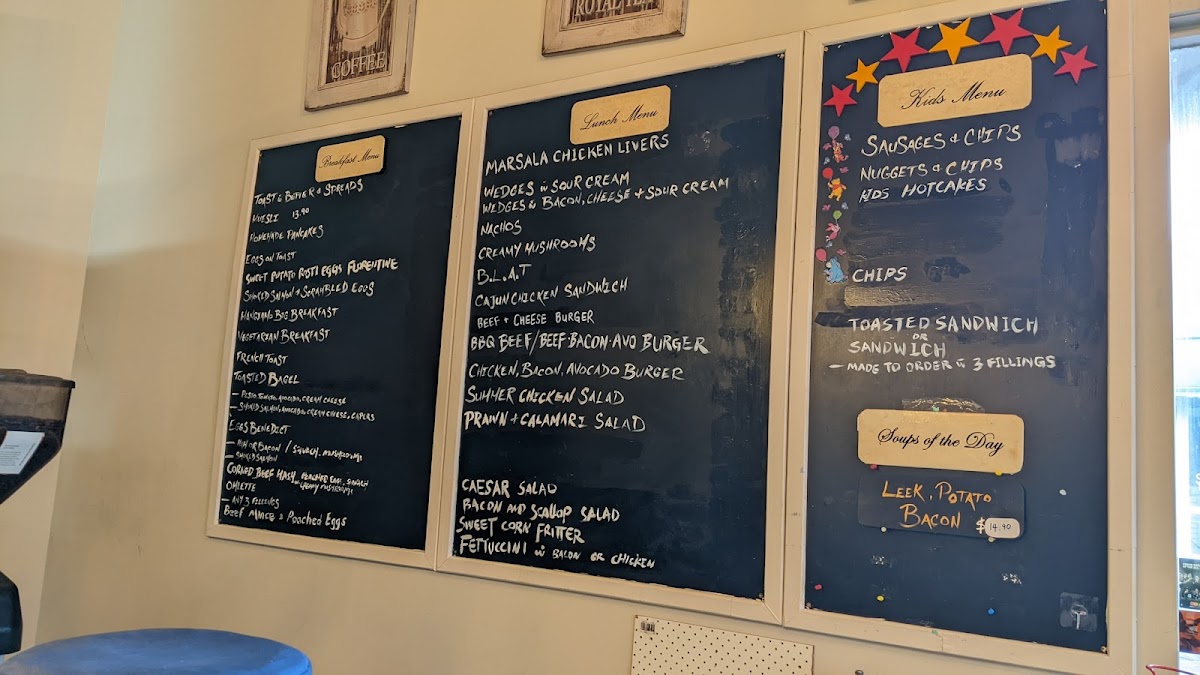 COFFEE
ROYAL TEA
Breakfast Menu
TOAST & BUTTER & SPREADS
MUESLI 13.90
HOMEMADE PANCAKES
EGGS ON TOAST
SWEET POTATO ROSTI EGGS FLORENTINE
SMOKED SALMON & SCRAMBLED EGGS
BIG BREAKFAST
VEGETARIAN BREAKFAST
FRENCH TOAST
TOASTED BAGEL
- PESTO, TOMATO, AVOCADO, CREAM CHEESE
- SMOKED SALMON, AVOCADO, CREAM CHEESE, CAPERS
EGGS BENEDICT
BACON / SPINACH, MUSHROOMS
- SMOKED SALMON
CORNED BEEF HASH, POACHED EGG, SPINACH
CREAMY MUSHROOMS
OMLETTE
- ANY 3 FILLINGS
BEEF MINCE & Poached Eggs
Lunch Menu
MARSALA CHICKEN LIVERS
WEDGES w SOUR CREAM
WEDGES & BACON, CHEESE + SOUR CREAM
NACHOS
CREAMY MUSHROOMS
B.L.A.T
CAJUN CHICKEN SANDWICH
BEEF + CHEESE BURGER
BBQ BEEF/BEEF·BACON·AVO BURGER
CHICKEN, BACON, AVOCADO BURGER
SUMMER CHICKEN SALAD
PRAWN + CALAMARI SALAD
CAESAR SALAD
BACON AND SCALLOP SALAD
SWEET CORN FRITTER
FETTUCCINI w BACON OR CHICKEN
Kids Menu
SAUSAGES & CHIPS
NUGGETS & CHIPS
KIDS HOTCAKES
CHIPS
TOASTED SANDWICH
OR
SANDWICH
- MADE TO ORDER w 3 FILLINGS
Soups of the Day
LEEK, POTATO
BACON $14.90